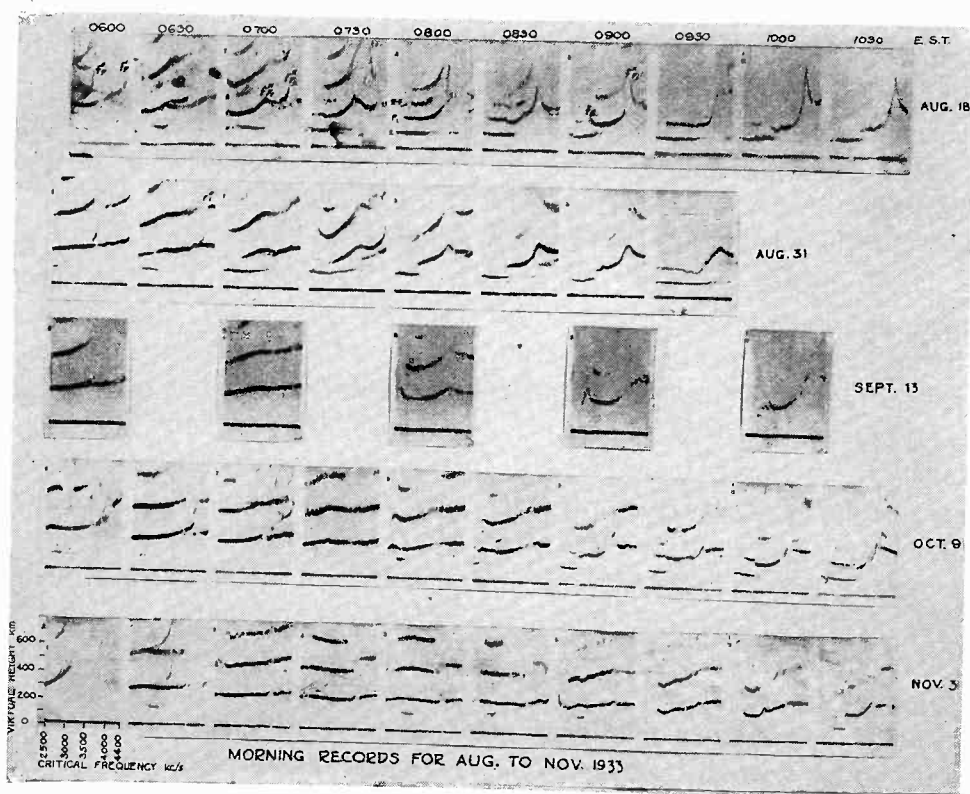 0600 0630 0700 0730 0800 0830 0900 0930 1000 1030 E.S.T.
AUG. 18
AUG. 31
SEPT. 13
OCT. 9
NOV. 3
VIRTUAL HEIGHT KM
600
400
200
0
2500 3000 3500 4000 4400
CRITICAL FREQUENCY KC/S
MORNING RECORDS FOR AUG. TO NOV. 1933